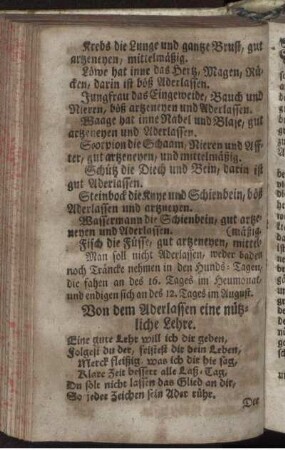 Krebs die Lunge und gantze Brust, gut
artzeneyen, mittelmäßig.
Löwe hat inne das Hertz, Magen, Rü-
cken, darin ist böß Aderlassen.
Jungfrau das Eingeweide, Bauch und
Nieren, böß artzeneyen und Aderlassen.
Waage hat inne Nabel und Blase, gut
artzeneyen und Aderlassen.
Scorpion die Schaam, Nieren und Aff-
ter, gut artzeneyen, und mittelmäßig.
Schütz die Diech und Bein, darin ist
gut Aderlassen.
Steinbock die Knye und Schienbein, böß
Aderlassen und artzneyen.
Wassermann die Schienbein, gut artze-
neyen und Aderlassen. (mäßig.
Fisch die Füsse, gut artzeneyen, mittel-
Man soll nicht Aderlassen, weder baden
noch Träncke nehmen in den Hunds-Tagen,
die fahen an des 16. Tages im Heumonat
und endigen sich an des 12. Tages im August.
Von dem Aderlassen eine nütz-
liche Lehre.
Eine gute Lehr will ich dir geben,
Folgest du der, fristest dir dein Leben,
Merck fleissig, was ich dir hie sag,
Klare Zeit bessert alle Laß-Tag,
Du solt nicht lassen das Glied an dir,
So jedes Zeichen sein Ader rühr.
Der